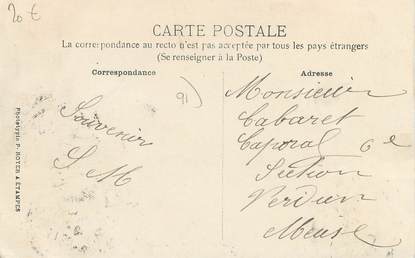 20 €
CARTE POSTALE
La correspondance au recto n'est pas acceptée par tous les pays étrangers
(Se renseigner à la Poste)
Correspondance
Adresse
91)
Souvenir
S M
Monsieur
Cabaret
Caporal 6e
Section
Verdun
Meuse
Phototypie P. ROYER à ETAMPES